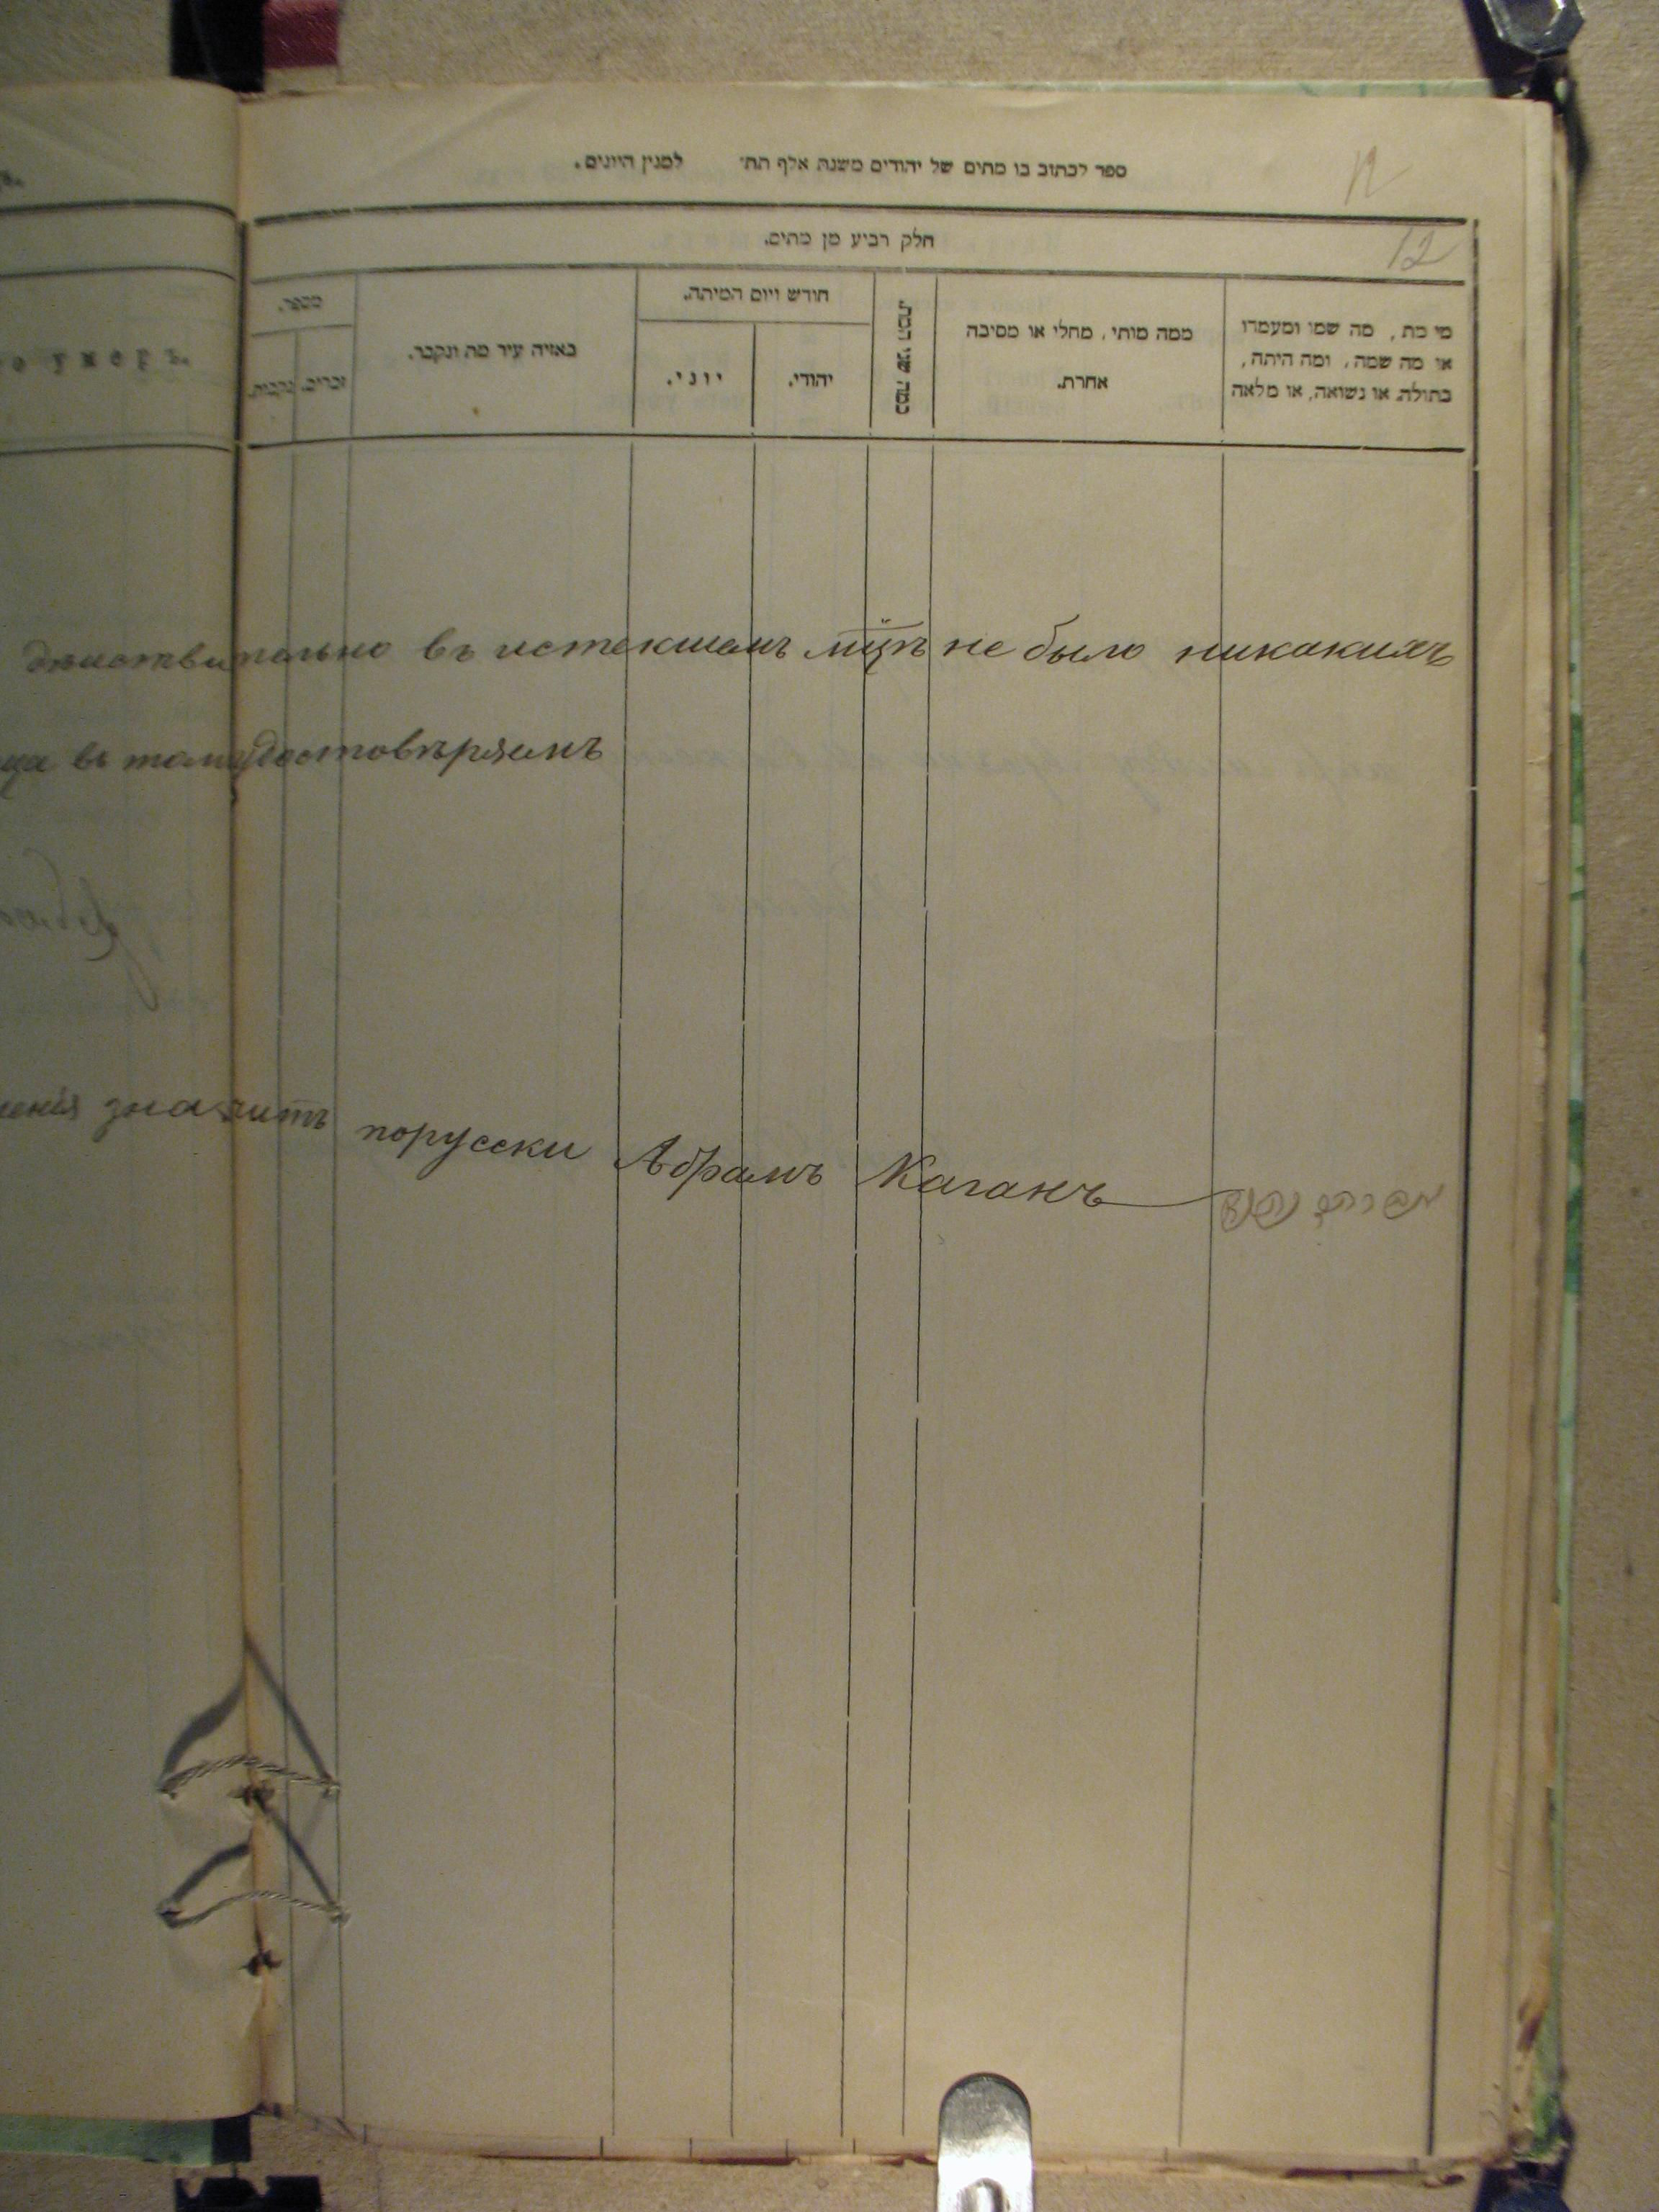 ספר לכתוב בו מתים של יהודים משנת אלף תת׳ למנין היונים.
12
חלק רביעי מן מתים.
12
מספר.
זכרים. נקבות.
באיזה עיר מת ונקבר.
חודש ויום המיתה.
יוני.
יהודי.
כמה שני המת
ממה מותי, מחלי או מסיבה
אחרת.
מי מת, מה שמו ומעמדו
או מה שמה, ומה היתה,
בתולה או נשואה, או מלאה
умеръ.
действительно въ истекшемъ мцѣ не было никакихъ
въ томъ удостовѣряемъ
значитъ порусски Абрамъ Каганъ